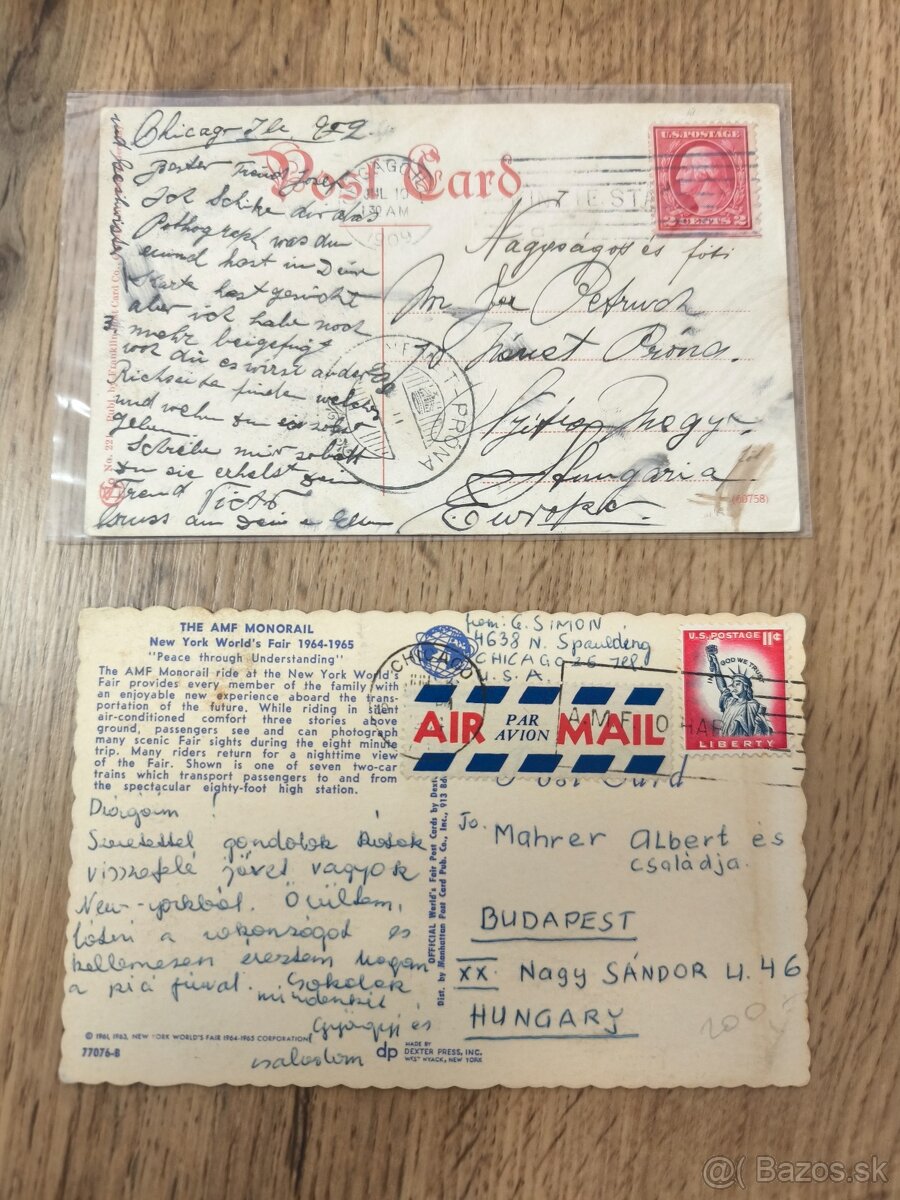 Chicago Ill. 909.
Post Card
CHICAGO
JUL 10
1 30 AM
1909
U.S. POSTAGE
2 CENTS 2
Bester Freund Josef
Ich Schike dir das
Pothograph was du
einmal hast in Deine
Karte hast gewünscht
aber ich habe noch
mehr beigefügt
wo du es wirst ander
Richseite finden welches
und wehn du
geben
Schreibe mir sobald
du sie erhelst dein
Freund Victor
Gruss an Deine Eltern
Nagyságos és
M Joe Petruch
Német Próna.
Nyitra megye
Hungaria
Europa.
PRÓNA
No. 22 Publ. by Franklin Post Card Co.
(60758)
THE AMF MONORAIL
New York World's Fair 1964-1965
"Peace through Understanding"
The AMF Monorail ride at the New York World's
Fair provides every member of the family with
an enjoyable new experience aboard the trans-
portation of the future. While riding in silent
air-conditioned comfort three stories above
ground, passengers see and can photograph
many scenic Fair sights during the eight minute
trip. Many riders return for a nighttime view
of the Fair. Shown is one of seven two-car
trains which transport passengers to and from
the spectacular eighty-foot high station.
from: G. SIMON
4638 N. Spaulding
CHICAGO 25 Ill.
U.S.A.
CHICAGO
U.S. POSTAGE 11¢
IN GOD WE TRUST
LIBERTY
AIR PAR AVION MAIL
Post Card
Drágáim!
Szeretettel gondolok Rátok
visszafelé jövet vagyok
New-yorkból. Örültem,
látni a rokonságot és
kellemesen éreztem magam
a pici fiúval. Csókolok
mindenkit
Györgyi és
családom
To. Mahrer Albert és
családja.
BUDAPEST
XX. Nagy SÁNDOR U. 46
HUNGARY
200
OFFICIAL World's Fair Post Cards by Dexter
Dist. by Manhattan Post Card Pub. Co., Inc., 913
© 1961, 1963, NEW YORK WORLD'S FAIR 1964-1965 CORPORATION
77076-B
dp MADE BY
DEXTER PRESS, INC.
WEST NYACK, NEW YORK
@( Bazos.sk